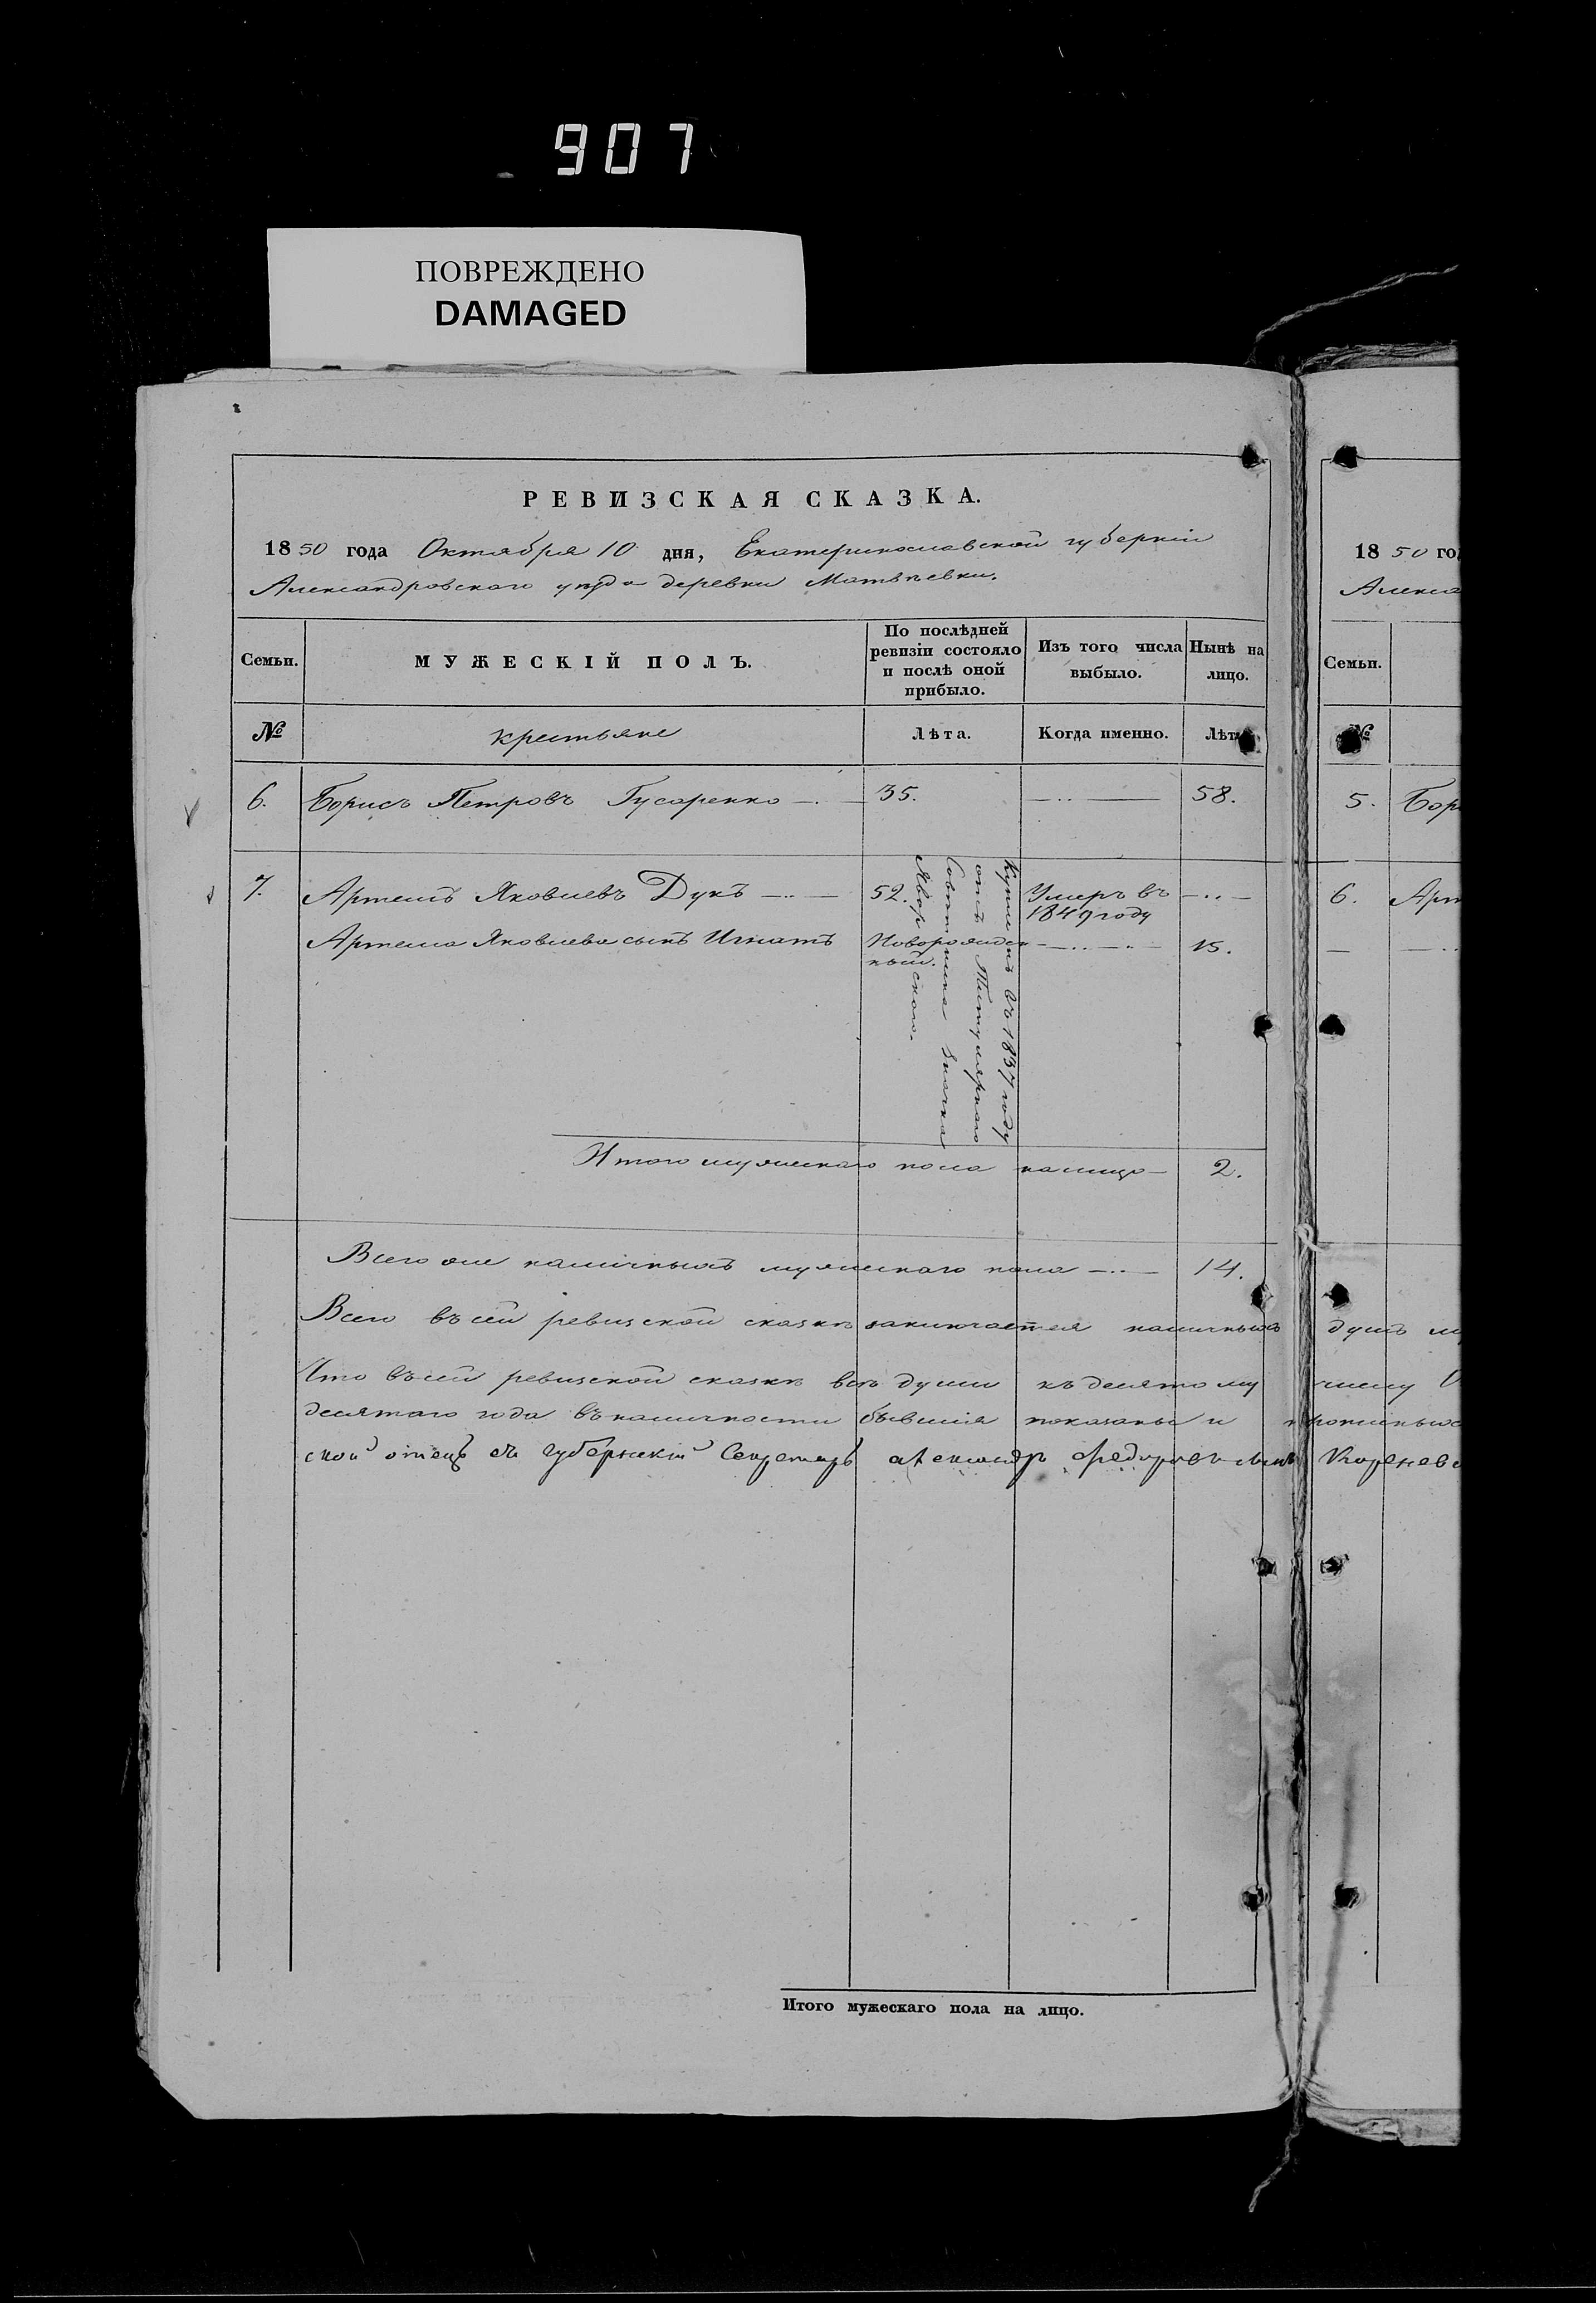 907
ПОВРЕЖДЕНО
DAMAGED
РЕВИЗСКАЯ СКАЗКА.
1850 года Октября 10 дня, Екатеринославской губерніи
Александровскаго уѣзда деревни Матвѣевки.
Семьи.
МУЖЕСКІЙ ПОЛЪ.
По послѣдней ревизіи состояло и послѣ оной прибыло.
Изъ того числа выбыло.
Нынѣ на лицо.
№
крестьяне
Лѣта.
Когда именно.
Лѣта
6. Борисъ Петровъ Гусаренко 35. 58.
7. Артемъ Яковлевъ Дукъ 52. Умеръ въ 1849 году
Артема Яковлева сынъ Игнатъ Новорожденный. 15.
Купленъ въ 1837 году
отъ Титулярнаго
Совѣтника
Яворскаго.
Итого мужескаго пола налицо 2.
Всего же наличныхъ мужескаго пола 14.
Всего въ сей ревизской сказкѣ заключается наличныхъ душъ
Что въ сей ревизской сказкѣ всѣ души къ десятому числу
десятаго года въ наличности бывшія показаны и
ской отецъ ея губернскій Секретарь Александръ Федоровъ сынъ
1850 го
Алекса
Семьи.
№
5. Бор
6. Арт
Итого мужескаго пола на лицо.